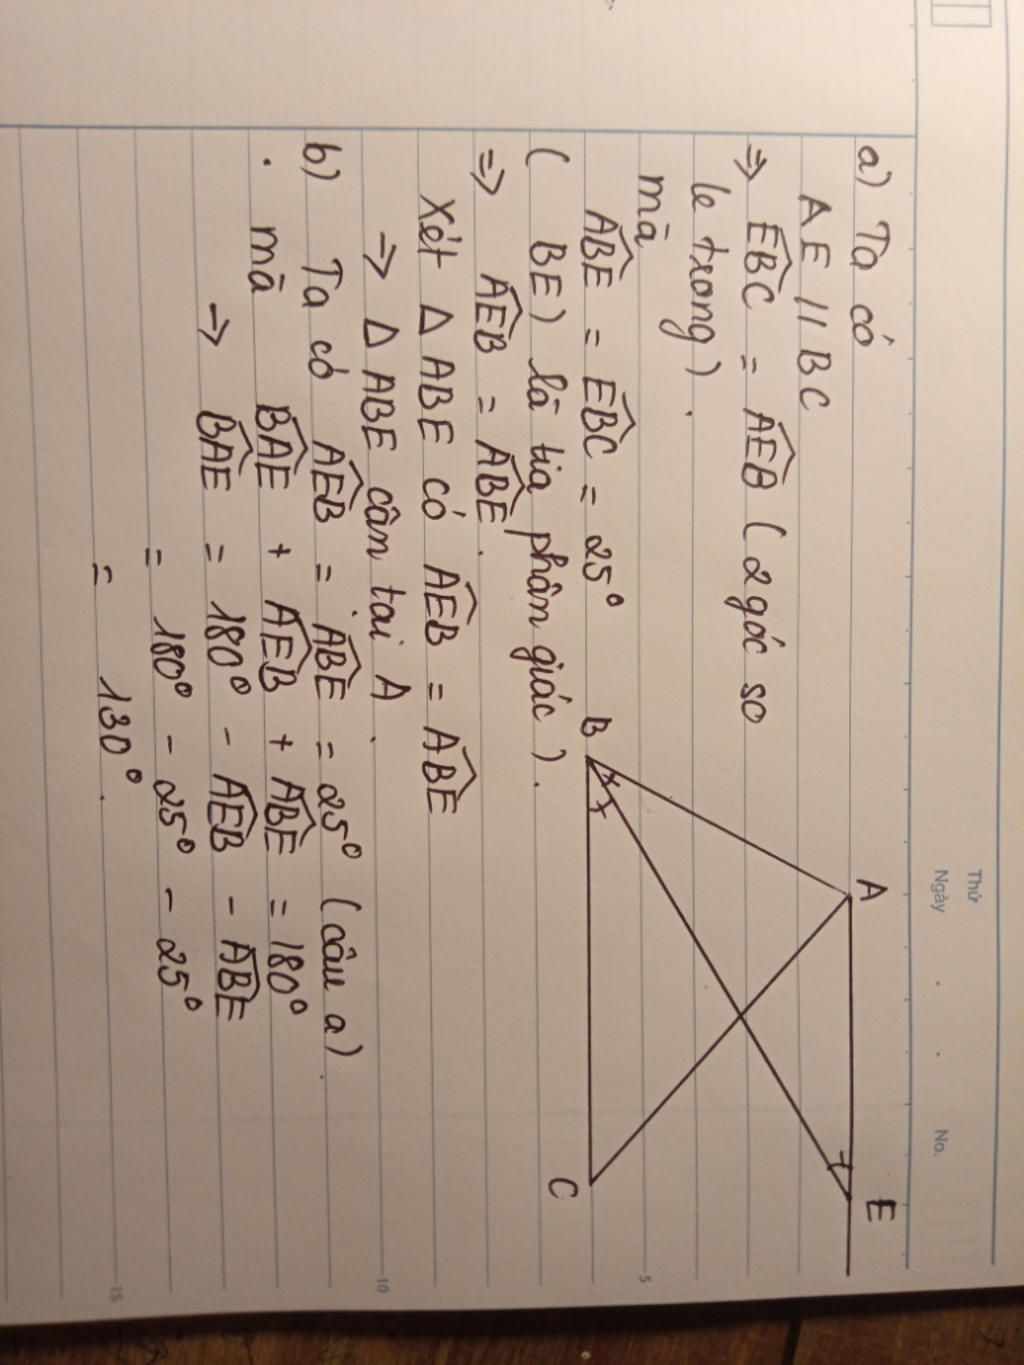 Thứ
Ngày . . No.
a) Ta có
AE // BC
=> EBC = AEB ( 2 góc so
le trong ) .
mà
ABE = EBC = 25°
( BE ) là tia phân giác ) .
=> AEB = ABE .
Xét Δ ABE có AEB = ABE
=> Δ ABE cân tai A .
b) Ta có AEB = ABE = 25° (câu a) .
. mà BAE + AEB + ABE = 180°
=> BAE = 180° - AEB - ABE
= 180° - 25° - 25°
= 130° .
A
E
B
C
5
10
15